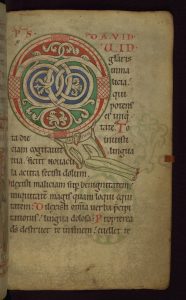 PS DAVID
QUID
gloris
in ma
licia
qui
potens
es iniq
tate To
ta die
ciam cogitauit
lingua
tua sicut nouacu
la acuta fecisti dolum
Dilexisti maliciam sup benignitatem
iniquitatem magis quam loqui equi
tatem Dilexisti omnia uerba pcipi
tationis lingua dolosa Propterea
ds destruet te in finem euellet te